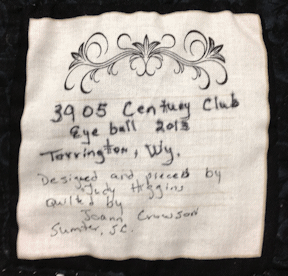 3905 Century Club
Eye ball 2013
Torrington, Wy.
Designed and pieced by
Judy Higgins
Quilted by
Joann Crowson
Sumter, SC.